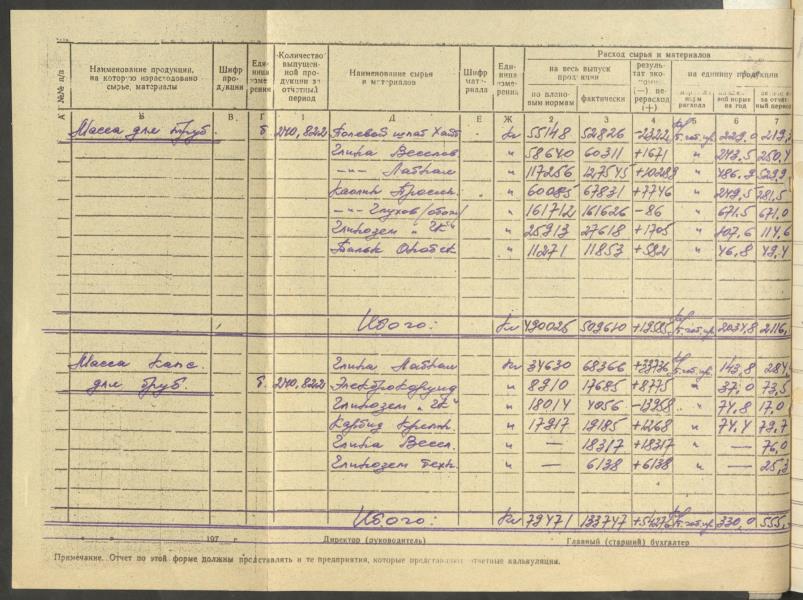 №№ п/п | Наименование продукции, на которую израсходовано сырье, материалы | Шифр про-дукции | Еди-ница изме-рения | Количество выпущен-ной про-дукции за отчетный период | Наименование сырья и материалов | Шифр мате-риала | Еди-ница измере-ния | Расход сырья и материалов
на весь выпуск продукции | резуль-тат эко-номии (—) пе-рерасход (+) | на единицу продукции
по плано-вым нормам | фактически | расхода | на год | за отчет-ный период
А | Б | В | Г | 1 | Д | Е | Ж | 2 | 3 | 4 | 5 | 6 | 7
Масса для труб. | т. | 240,822 | Полевой шпат | кг | 55148 | 52826 | -2322 | 229,0
Глина Веселов. | " | 58640 | 60311 | +1671 | " | 243,5 | 250,4
—"— Латнен | " | 117256 | 127545 | +10289 | " | 486,9 | 529,9
Каолин Просян. | " | 60085 | 67831 | +7746 | " | 249,5 | 281,5
—"— Глухов/обог/ | " | 161712 | 161626 | -86 | " | 671,5 | 671,0
Глинозем "ГК" | " | 25913 | 27618 | +1705 | " | 107,6 | 114,6
Тальк Онотск | " | 11271 | 11853 | +582 | " | 46,8 | 49,4
Итого: | кг | 490025 | 509610 | +19585 | 2034,8 | 2116,
Масса капс. | Глина Латнен | кг | 34630 | 68366 | +33736 | 143,8 | 284,
для труб. | т. | 240,822 | Электрокорунд | " | 8910 | 17685 | +8775 | " | 37,0 | 73,5
Глинозем "ГК" | " | 18014 | 4056 | -13958 | " | 74,8 | 17,0
Карбид кремн. | " | 17917 | 19185 | +1268 | " | 74,4 | 79,7
Глина Весел. | " | — | 18317 | +18317 | " | — | 76,0
Глинозем техн. | " | — | 6138 | +6138 | " | — | 25,
Итого: | кг | 79471 | 133747 | +54276 | 330,0 | 555,
" " 197 г. Директор (руководитель) Главный (старший) бухгалтер
Примечание. Отчет по этой форме должны представлять и те предприятия, которые представляют отчетные калькуляции.